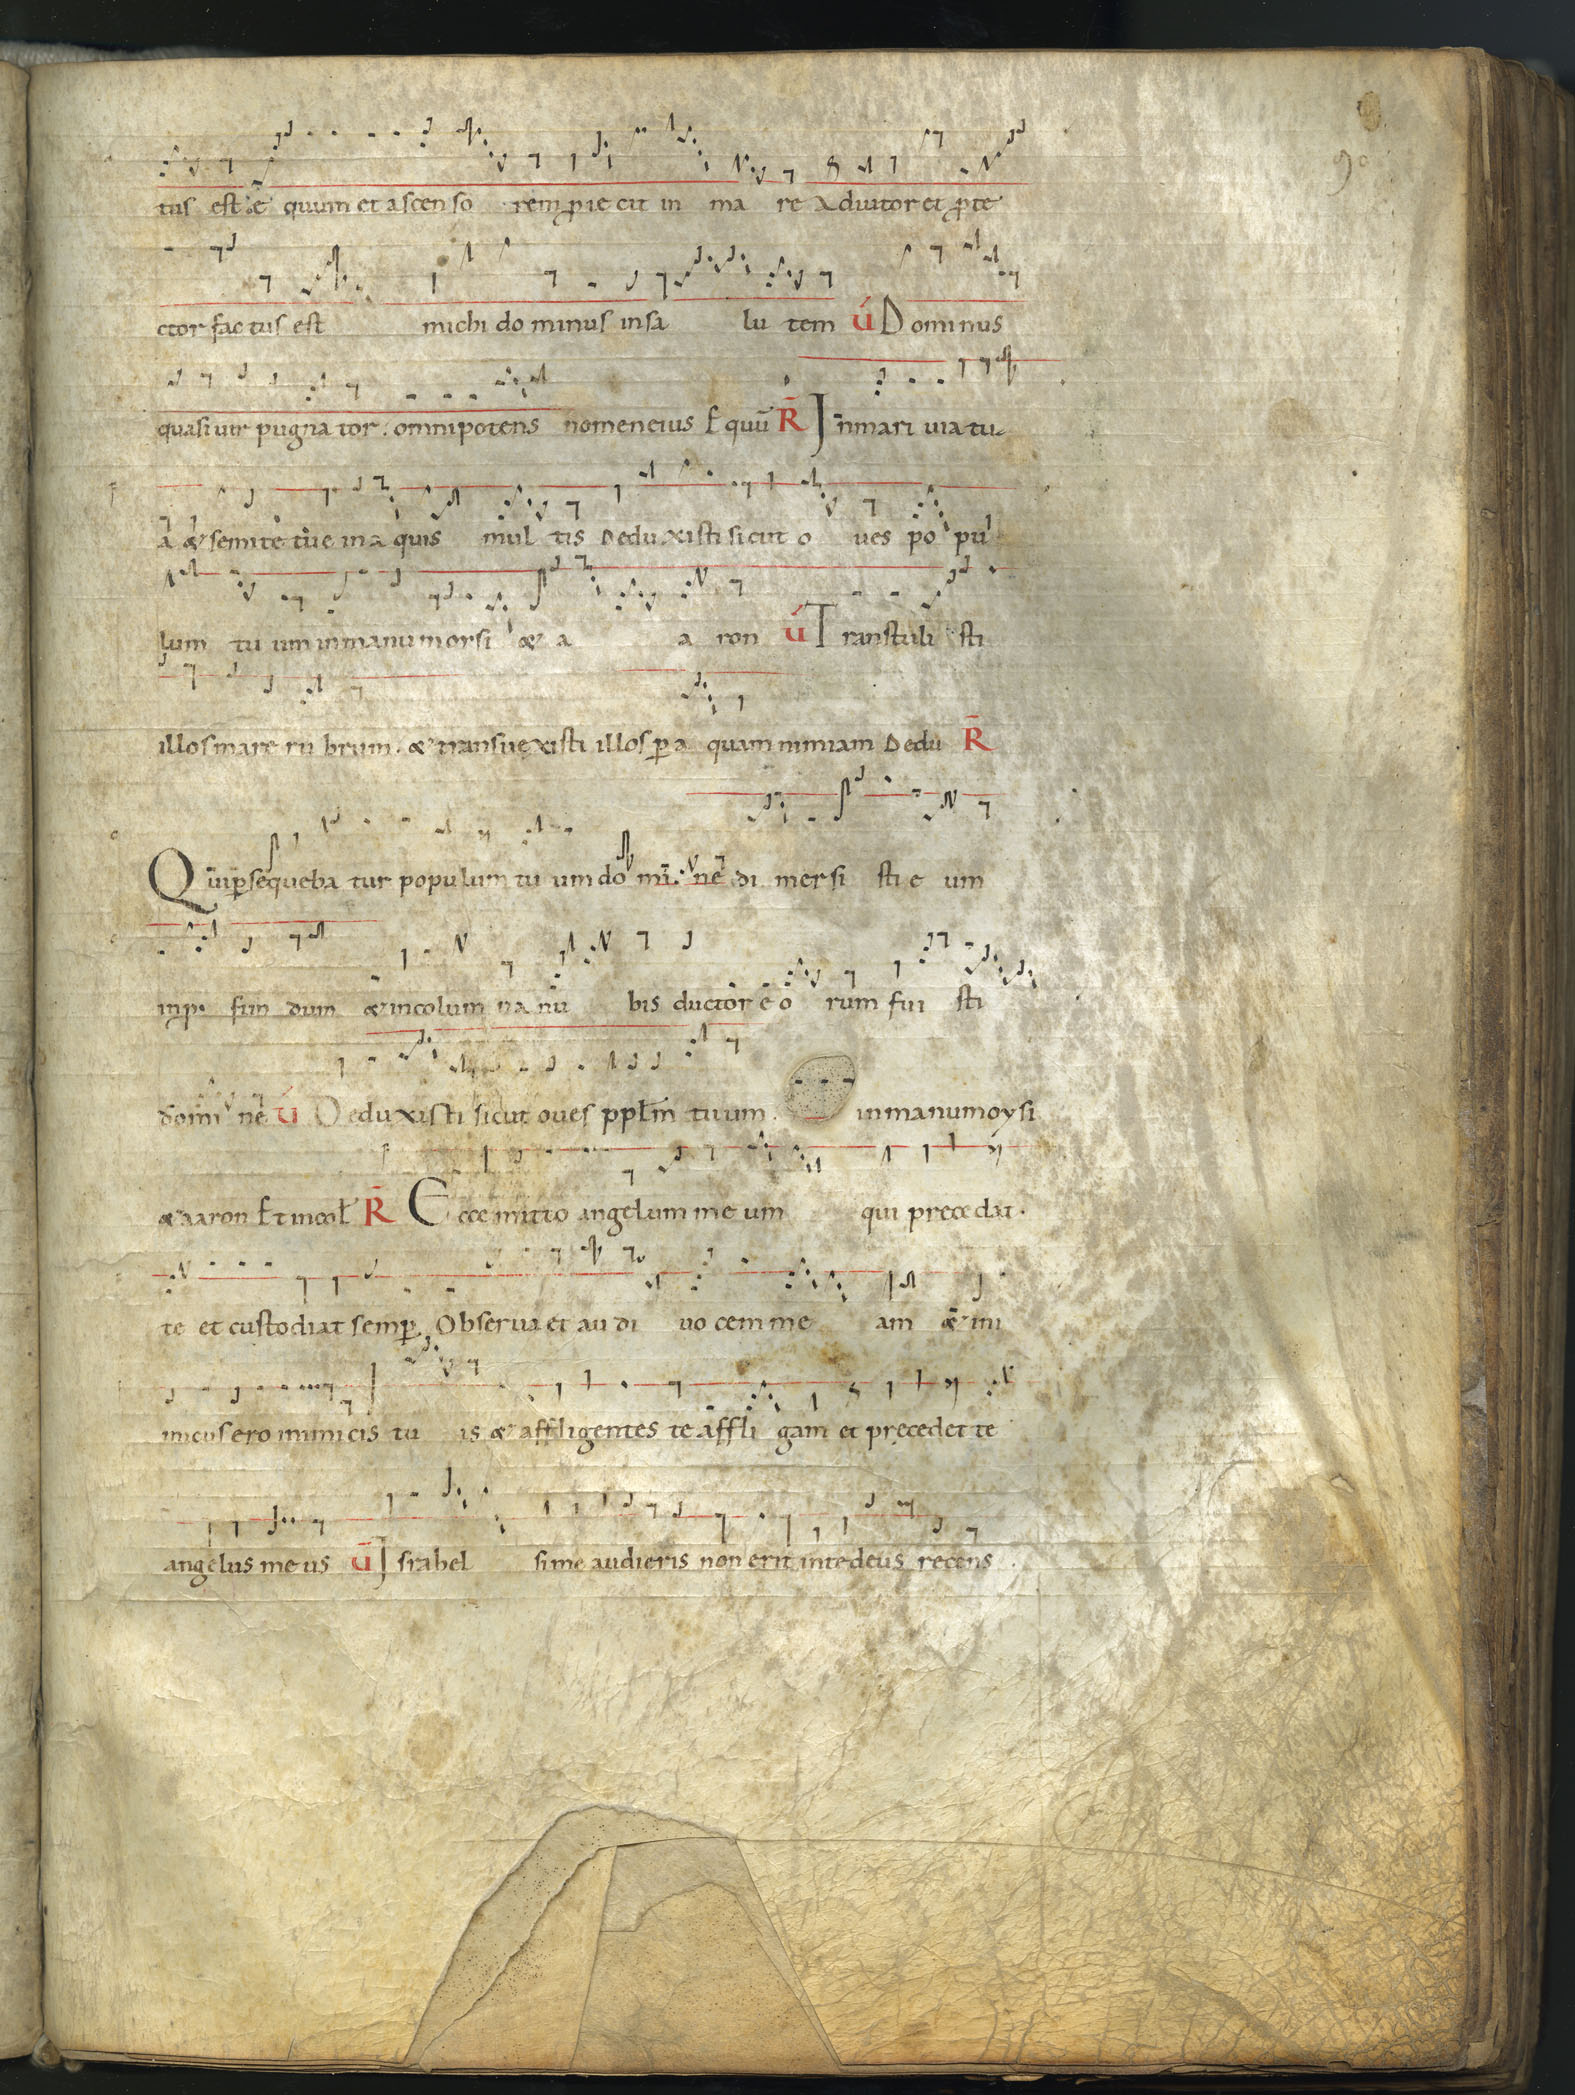 90
tus est e quum et ascen so rem proie cit in ma re Adiutor et prote
ctor fac tus est michi do minus in sa lu tem V Dominus
quasi uir pugna tor. omnipotens nomen eius Equū R̄ In mari uia tu
a & semite tue in a quis mul tis Deduxisti sicut o ues po pu
lum tu um in manu morsi & a a ron V Transtuli sti
illos mare ru brum. & transuexisti illos p a quam nimiam Dedu R̄
Qui psequeba tur populum tu um do mi ne di mersi sti e um
in p fun dum & in colum na nu bis ductor e o rum fui sti
domi ne V Deduxisti sicut oues pplm tuum. in manu moysi
& aaron Et in col R̄ Ecce mitto angelum me um qui precedat.
te et custodiat semp. Obserua et au di uo cem me am & ini
micus ero inimicis tu is & affligentes te affli gam et precedet te
angelus me us V Israhel si me audieris non erit in te deus recens.